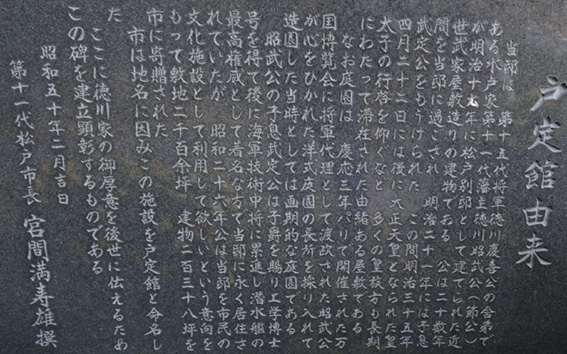 戸定館由来
当邸は 第十五代将軍徳川慶喜公の舎弟で
ある水戸家第十一代藩主徳川昭武公(節公)
が明治十七年に松戸別邸として建てられた近
世武家屋敷造りの建物である 公は二十数年
間を当邸に過ごされ 明治二十一年には子息
武定公をもうけられた この間明治三十五年
四月二十二日には後に大正天皇となられた皇
太子の行啓を仰ぐなど 多くの皇族方も長期
にわたって滞在された由緒ある屋敷である
なお庭園は 慶応三年パリで開催された万
国博覧会に将軍代理として渡欧された昭武公
が心をひかれた洋式庭園の長所を採り入れて
造園した当時としては画期的な庭園である
昭武公の子息武定公は子爵を賜り工学博士
号を得て後に海軍技術中将に累進し潜水艦の
最高権威として著名な方で当邸に永く居住さ
れていたが 昭和二十六年公は当邸を市民の
文化施設として利用して欲しいという意向を
もって敷地二千百余坪 建物二百三十八坪を
市に寄贈された
市は地名に因みこの施設を戸定館と命名し
た ここに徳川家の御厚意を後世に伝えるため
この碑を建立顕彰するものである
昭和五十年二月吉日
第十一代松戸市長 宮間満寿雄 撰